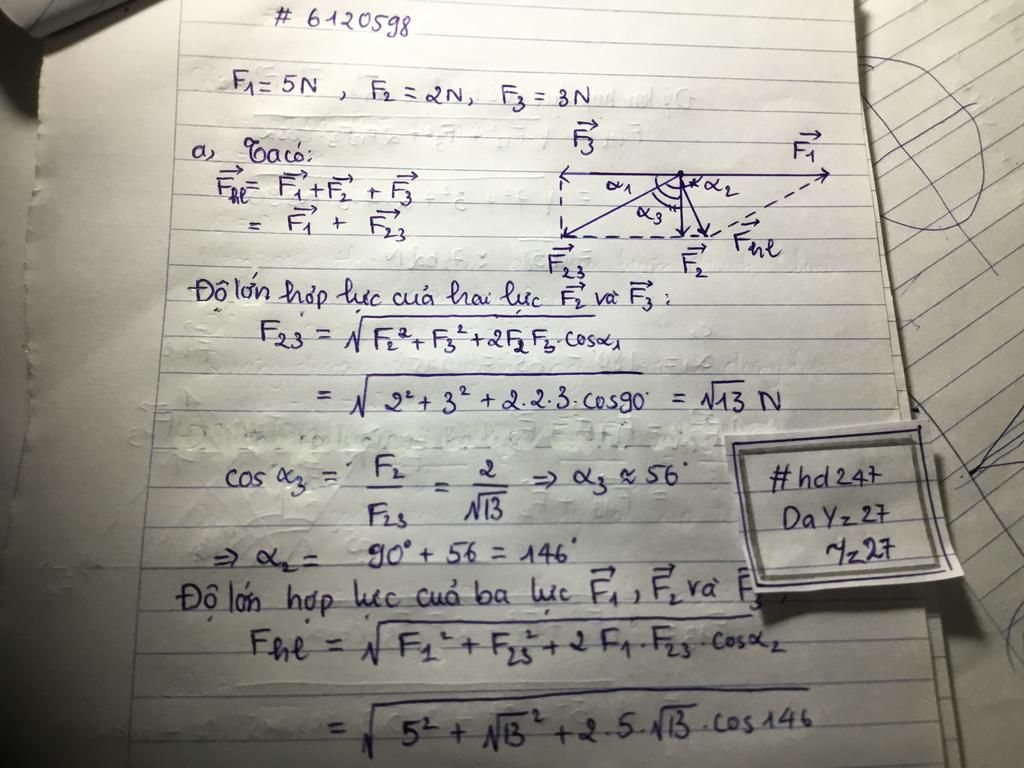 # 6120598
F1 = 5N , F2 = 2N, F3 = 3N
a, Ta có:
F⃗hl = F⃗1 + F⃗2 + F⃗3
= F⃗1 + F⃗23
F⃗3
F⃗1
α1
α2
α3
F⃗23
F⃗2
F⃗hl
Độ lớn hợp lực của hai lực F⃗2 và F⃗3 :
F23 = √(F2² + F3² + 2F2 F3 . cosα1)
= √(2² + 3² + 2.2.3.cos90°) = √13 N
cos α3 = F2/F23 = 2/√13 ⇒ α3 ≈ 56°
⇒ α2 = 90° + 56 = 146°
Độ lớn hợp lực của ba lực F⃗1 , F⃗2 và F⃗3
Fhl = √(F1² + F23² + 2 F1 . F23 . cosα2)
= √(5² + √13² + 2.5.√13 . cos146)
#hd247
DaYz27
Yz27